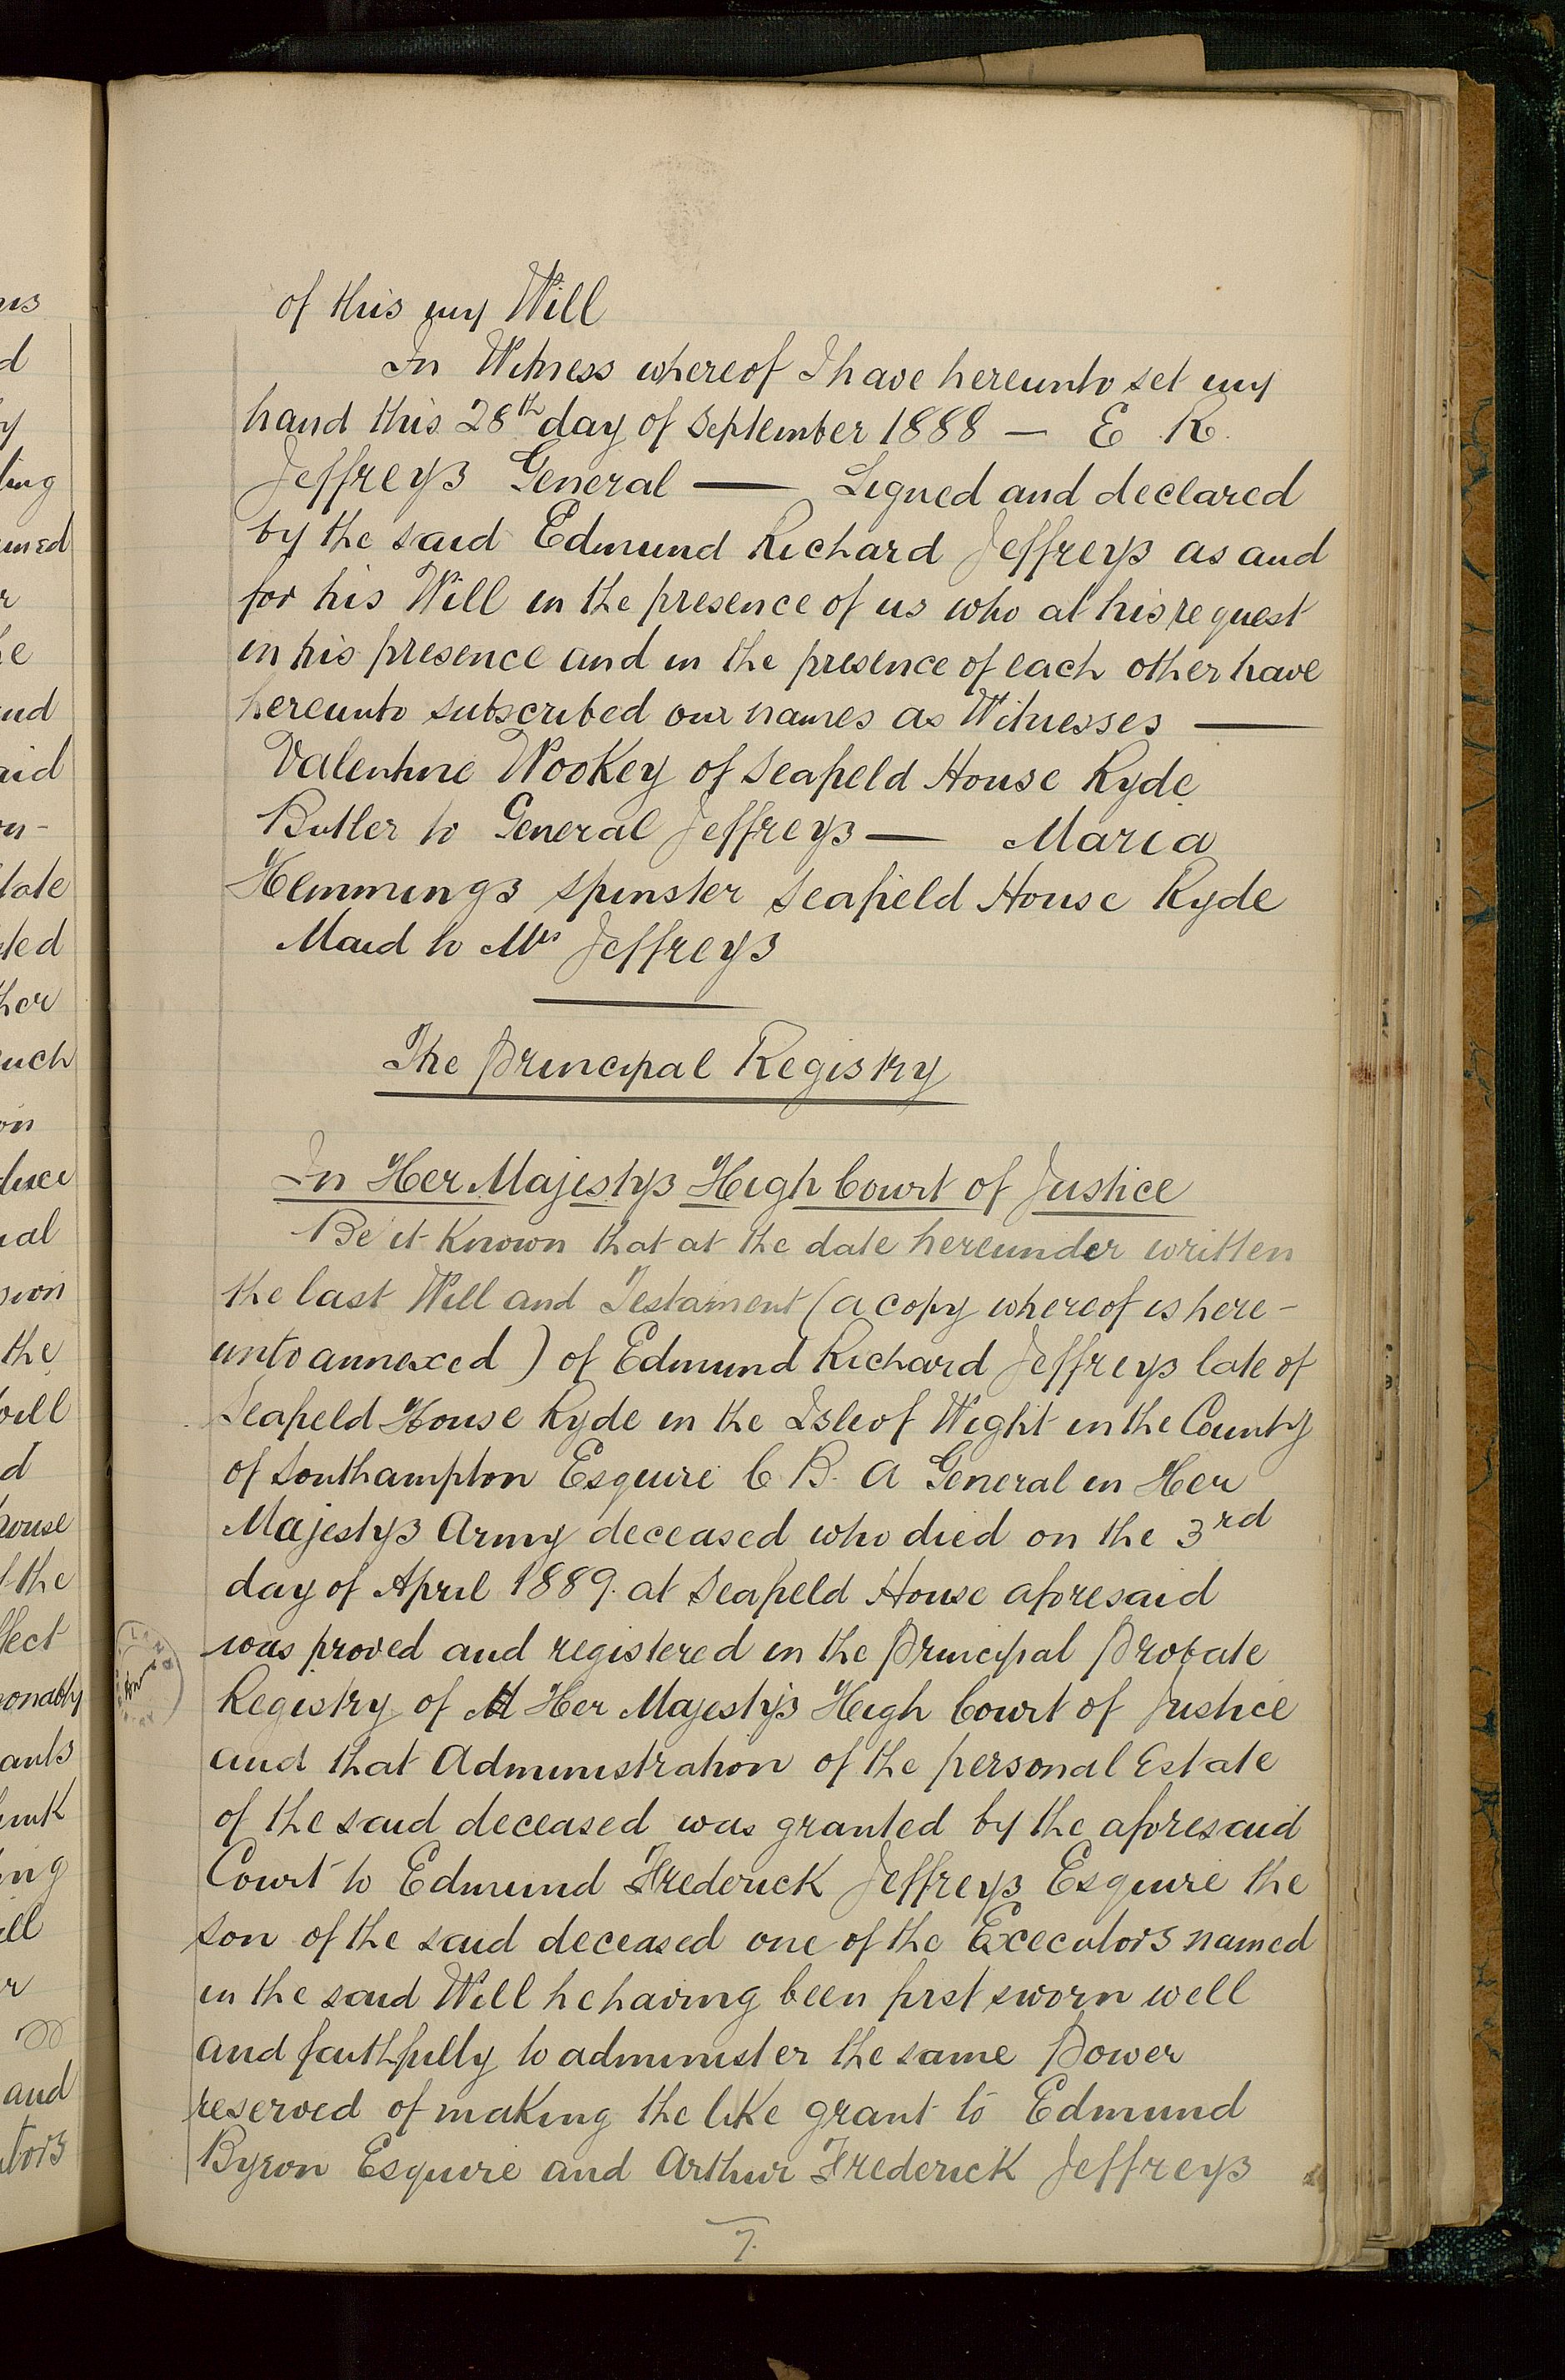 of this my Will
In Witness whereof I have hereunto set my
hand this 28th day of September 1888 — E. R.
Jeffreys General — Signed and declared
by the said Edmund Richard Jeffreys as and
for his Will in the presence of us who at his request
in his presence and in the presence of each other have
hereunto subscribed our names as Witnesses —
Valentine Wookey of Seafield House Ryde
Butler to General Jeffreys — Maria
Hemmings spinster Seafield House Ryde
Maid to Mrs Jeffreys
The Principal Registry
In Her Majestys High Court of Justice
Be it Known that at the date hereunder written
the last Will and Testament (a copy whereof is here-
unto annexed) of Edmund Richard Jeffreys late of
Seafield House Ryde in the Isle of Wight in the County
of Southampton Esquire C. B. a General in Her
Majestys Army deceased who died on the 3rd
day of April 1889. at Seafield House aforesaid
was proved and registered in the Principal Probate
Registry of Her Majesty's High Court of Justice
and that Administration of the personal Estate
of the said deceased was granted by the aforesaid
Court to Edmund Frederick Jeffreys Esquire the
son of the said deceased one of the Executors named
in the said Will he having been first sworn well
and faithfully to administer the same Power
reserved of making the like grant to Edmund
Byron Esquire and Arthur Frederick Jeffreys
7.